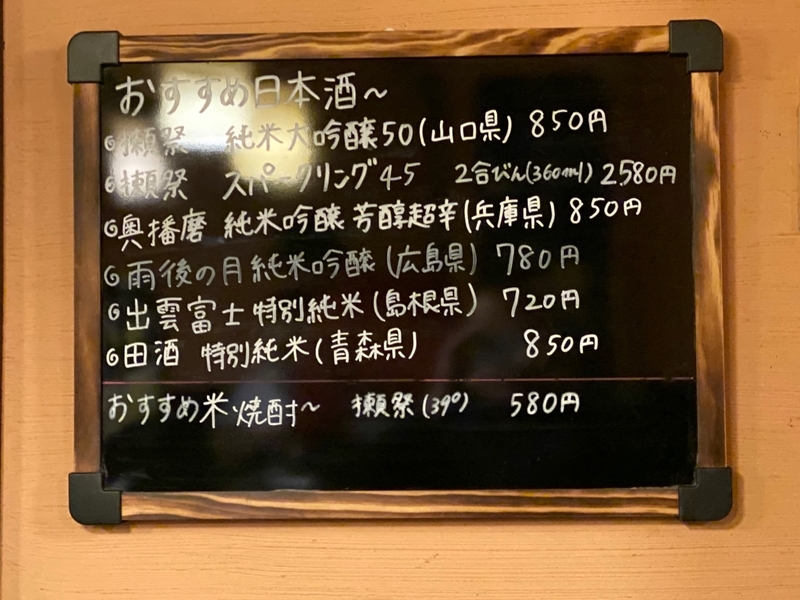 おすすめ日本酒～
獺祭 純米大吟醸50(山口県) 850円
獺祭 スパークリング45 2合びん(360ml) 2,580円
奥播磨 純米吟醸 芳醇超辛(兵庫県) 850円
雨後の月 純米吟醸(広島県) 780円
出雲富士 特別純米(島根県) 720円
田酒 特別純米(青森県) 850円
おすすめ米焼酎～ 獺祭(39°) 580円